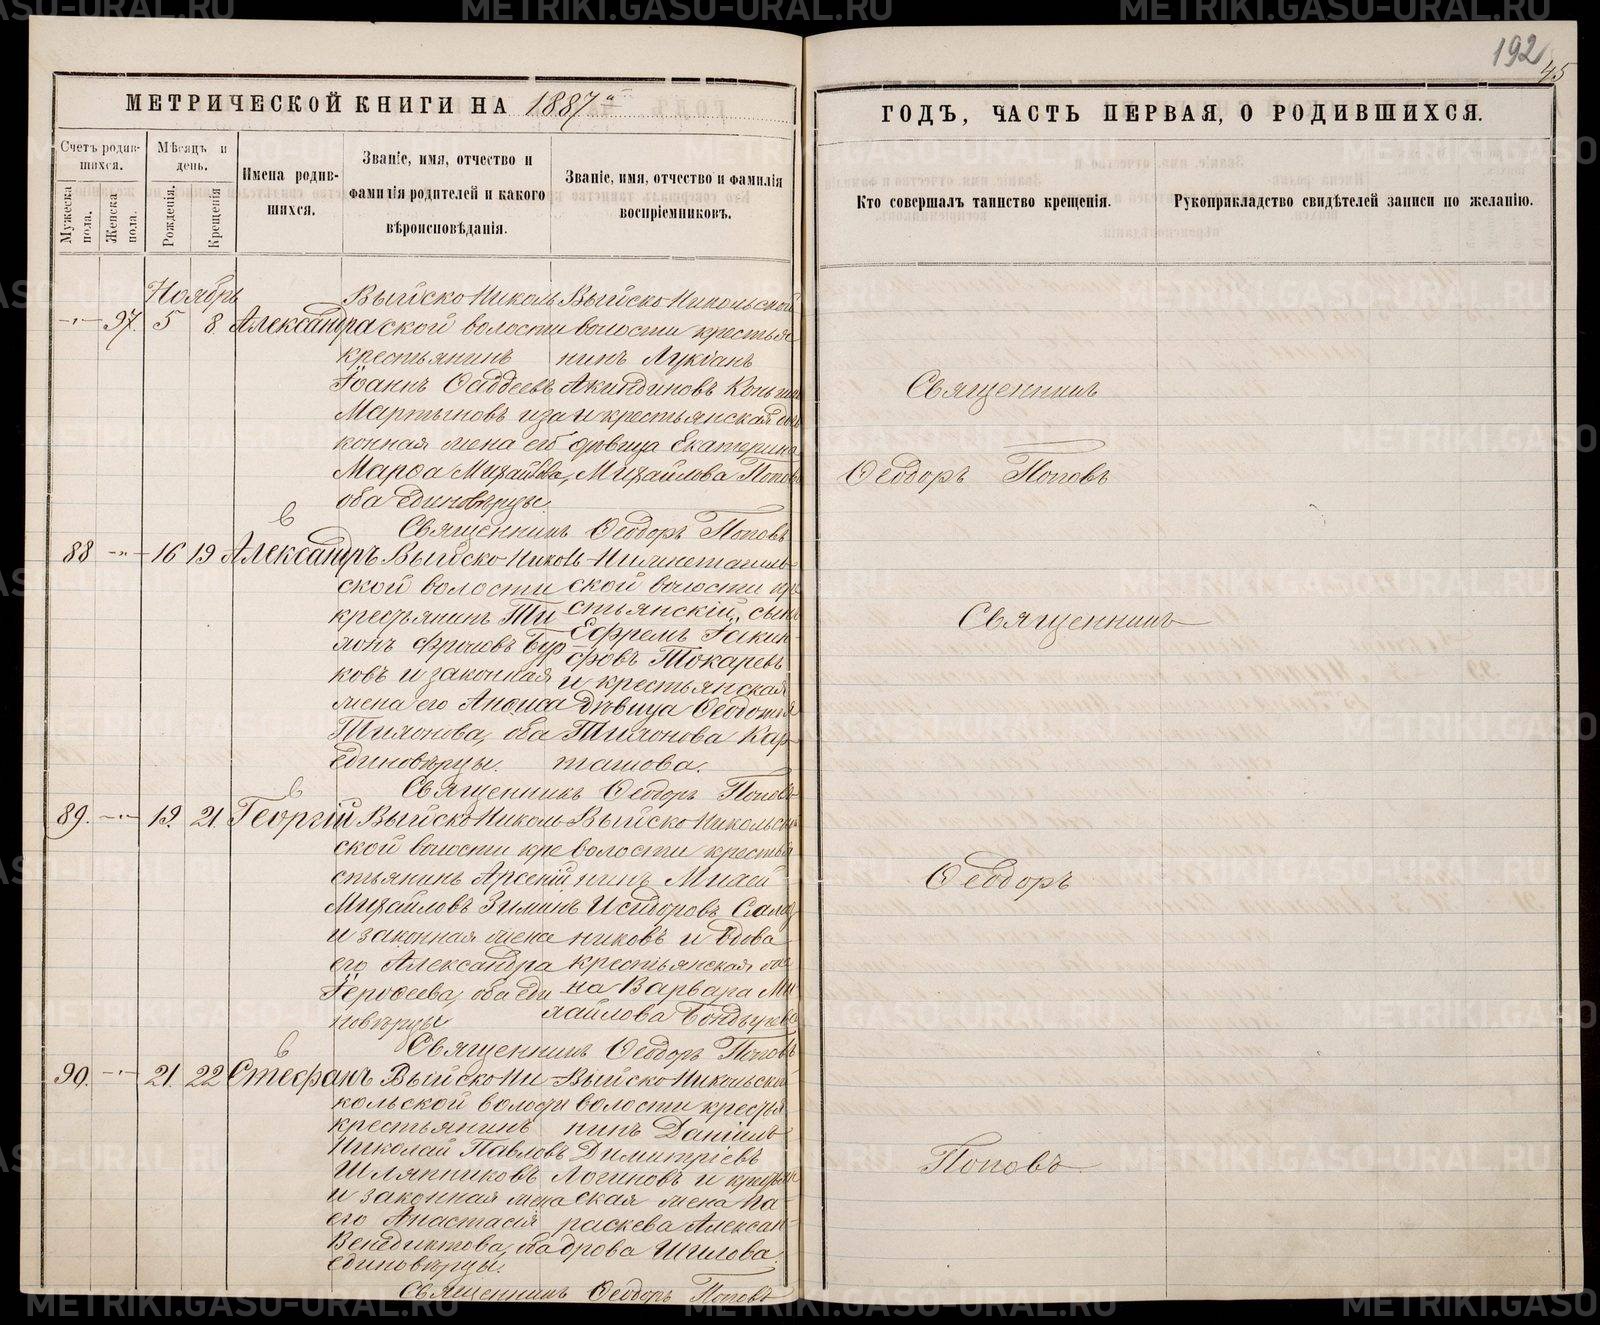 192
45
МЕТРИЧЕСКОЙ КНИГИ НА 1887й
ГОДЪ, ЧАСТЬ ПЕРВАЯ, О РОДИВШИХСЯ.
Счетъ родив-
шихся.
Мужеска
пола.
Женска
пола.
Мѣсяцъ и
день.
Рожденія.
Крещенія
Имена родив-
шихся.
Званіе, имя, отчество и
фамилія родителей и какого
вѣроисповѣданія.
Званіе, имя, отчество и фамилія
воспріемниковъ.
Кто совершалъ таинство крещенія.
Рукоприкладство свидѣтелей записи по желанію.
Ноябрь
97. 5 8. Александра
Выйско Николь
ской волости
крестьянинъ
Іоаннъ Ѳаддеевъ
Мартыновъ и за
конная жена его
Марѳа Михайлова,
оба единовѣрцы.
Выйско Никольской
волости крестья
нинъ Лукіанъ
Акиндиновъ
и крестьянская
дѣвица Екатерина
Михайлова Попова
Священникъ Ѳеодоръ Поповъ
Священникъ
Ѳеодоръ Поповъ
88 16 19 Александръ
Выйско Николь
ской волости
крестьянинъ Ти
хонъ Фроловъ Бур
ковъ и законная
жена его Анфиса
Тихонова, оба
единовѣрцы.
Нижнетагиль
ской волости кре
стьянскій сынъ
Ефремъ Іакин
фовъ Токаревъ
и крестьянская
дѣвица Ѳеодотія
Тихонова Кар
ташова.
Священникъ Ѳеодоръ Поповъ
Священникъ
89. 19. 21. Георгій
Выйско Николь
ской волости кре
стьянинъ Арсеній
Михайловъ Зиминъ
и законная жена
его Александра
Іероѳеева, оба еди
новѣрцы
Выйско Никольской
волости крестья
нинъ Михей
Исидоровъ
никовъ и вдова
крестьянская
на Варвара Ми
хайлова
Священникъ Ѳеодоръ Поповъ
Ѳеодоръ
90. 21. 22 Стефанъ
Выйско Ни
кольской волости
крестьянинъ
Николай Павловъ
Шляпниковъ
и законная жена
его Анастасія
Венедиктова, оба
единовѣрцы.
Выйско Никольской
волости крестья
нинъ Даніилъ
Димитріевъ
Логиновъ и крестьян
ская жена Па-
раскева Алексан-
дрова Шилова.
Священникъ Ѳеодоръ Поповъ
Поповъ
METRIKI.GASO-URAL.RU